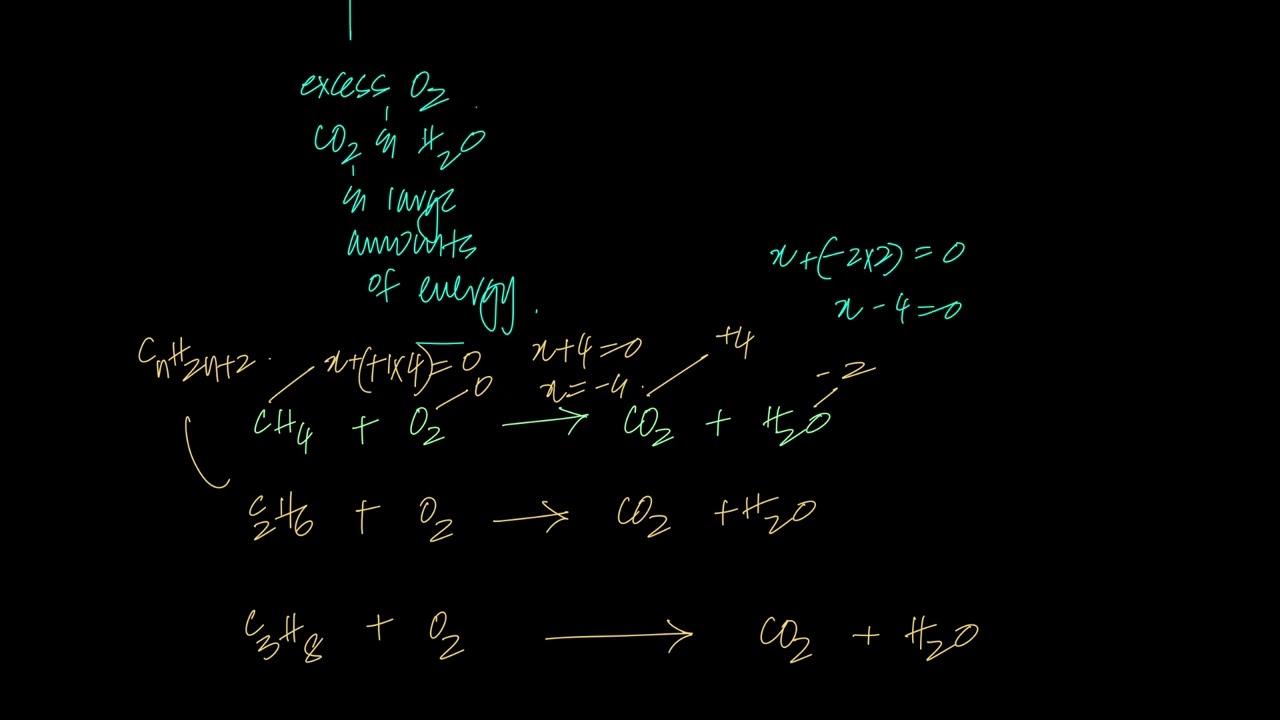 excess O₂
CO₂ in H₂O
in large
amounts
of energy.
x+(-2×2) = 0
x - 4 = 0
CₙH₂ₙ₊₂.
x+(+1×4) = 0
x+4 = 0
x = -4.
+4
-2
0
CH₄ + O₂ → CO₂ + H₂O
C₂H₆ + O₂ → CO₂ + H₂O
C₃H₈ + O₂ → CO₂ + H₂O